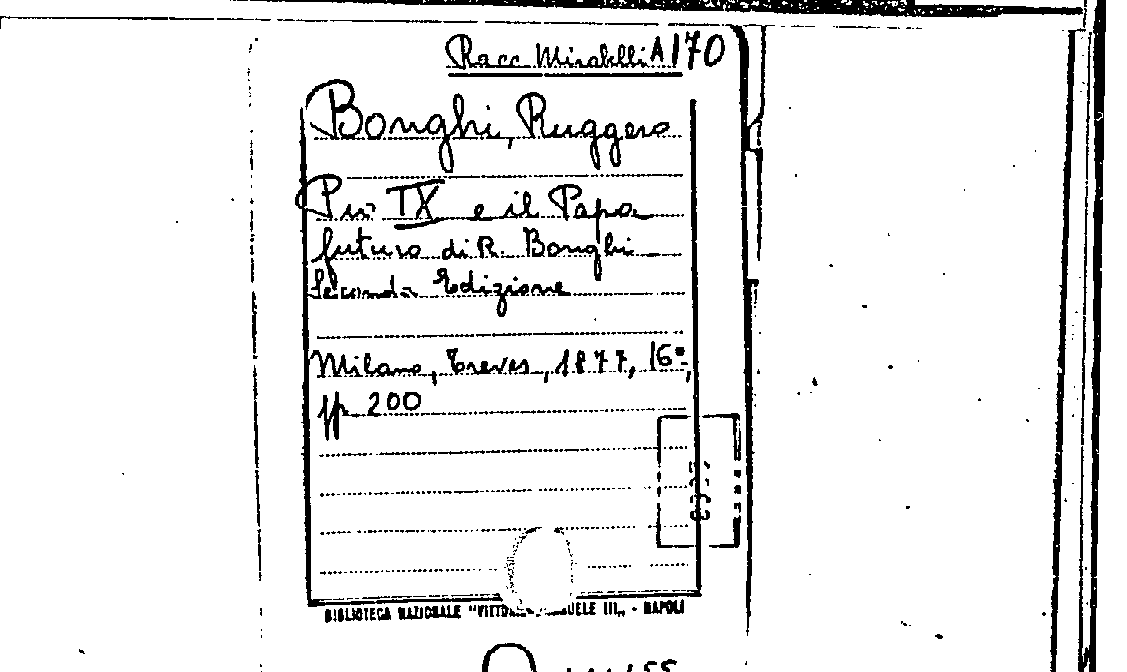 Racc Mirabelli A 170
Bonghi, Ruggero
Pio IX e il Papa
futuro di R. Bonghi
Seconda Edizione
Milano, Treves, 1877, 16º,
pp. 200
BIBLIOTECA NAZIONALE "VITTORIO EMANUELE III„ - NAPOLI